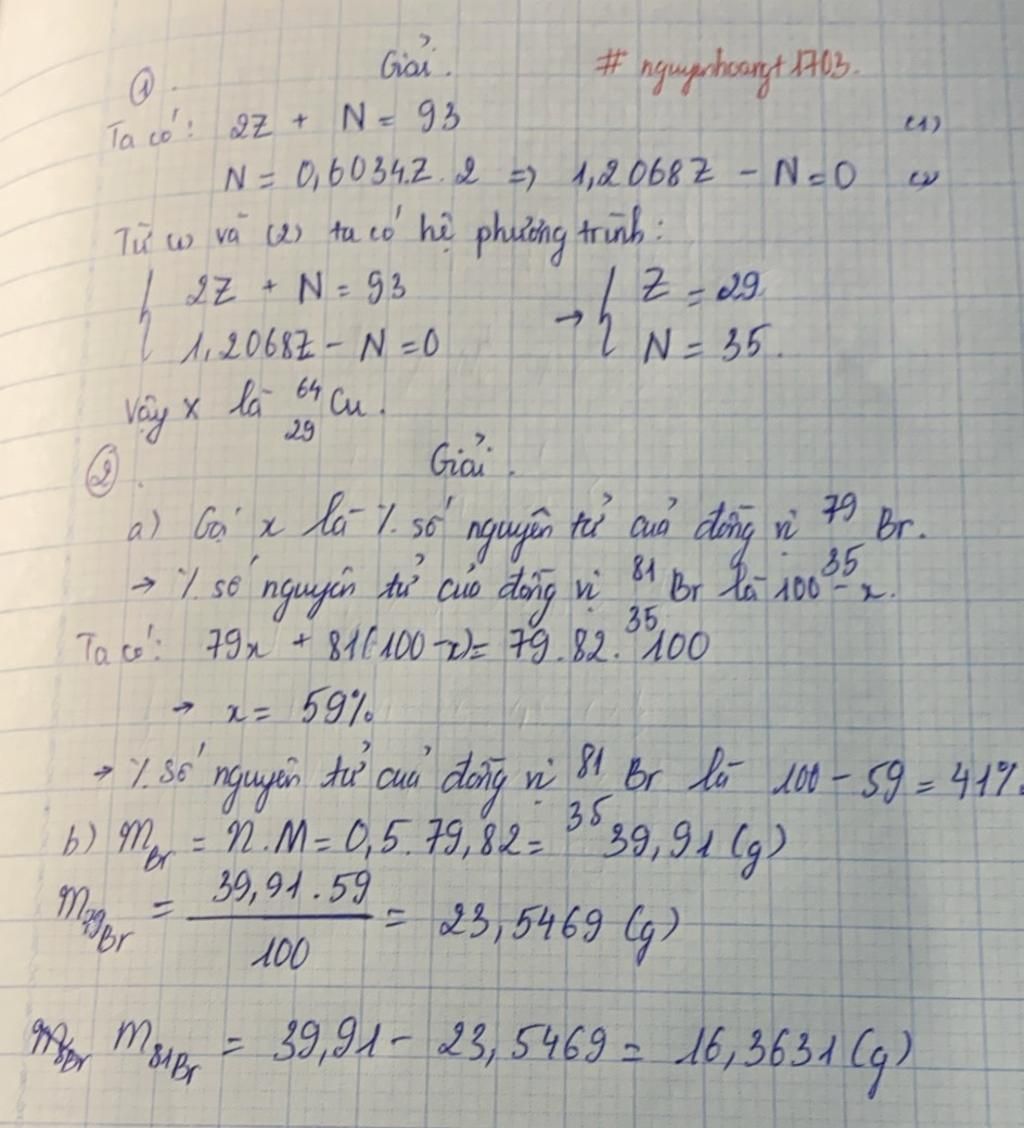 ① Giải. # nguyenhoangt1703.
Ta có: 2Z + N = 93 (1)
N = 0,6034.Z.2 => 1,2068Z - N = 0 (2)
Từ (1) và (2) ta có hệ phương trình:
{ 2Z + N = 93 → { Z = 29
1,2068Z - N = 0 N = 35.
Vậy X là ⁶⁴₂₉Cu.
② Giải.
a) Gọi x là % số nguyên tử của đồng vị ⁷⁹₃₅Br.
→ % số nguyên tử của đồng vị ⁸¹₃₅Br là 100 - x.
Ta có: 79x + 81(100-x) = 79.82.100
→ x = 59%
→ % số nguyên tử của đồng vị ⁸¹₃₅Br là 100 - 59 = 41%
b) mBr = n.M = 0,5.79,82 = 39,91 (g)
m79Br = 39,91.59 / 100 = 23,5469 (g)
m81Br = 39,91 - 23,5469 = 16,3631 (g)